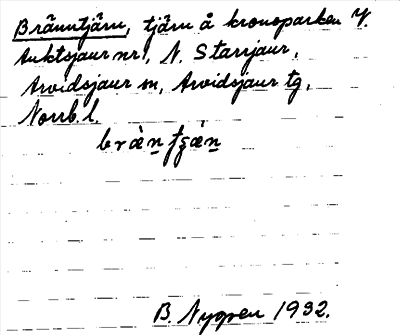 Bränntjärn, tjärn å kronoparken Y.
Auktsjaur nr 1, N. Starrjaur,
Arvidsjaur sn, Arvidsjaur tg,
Norrb. l.
B. Nygren 1932.